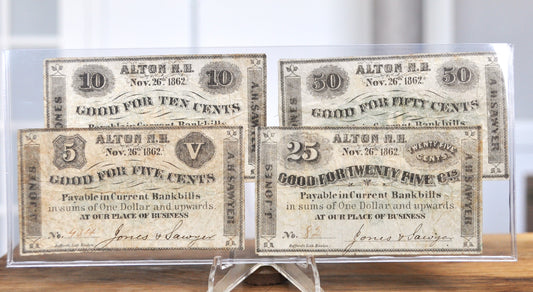 10 ALTON N.H. 10
Nov. 26th 1862.
GOOD FOR TEN CENTS
Payable in Current Bankbills
J. JONES
A.H. SAWYER
50 ALTON N.H. 50
Nov. 26th 1862.
GOOD FOR FIFTY CENTS
Payable in Current Bankbills
A.H. SAWYER
5 ALTON N.H. V
Nov. 26th 1862.
GOOD FOR FIVE CENTS
Payable in Current Bankbills
in sums of One Dollar and upwards.
AT OUR PLACE OF BUSINESS
No. Jones & Sawyer
J. JONES
A.H. SAWYER
25 ALTON N.H. TWENTY FIVE CENTS
Nov. 26th 1862.
GOOD FOR TWENTY FIVE Cts.
Payable in Current Bankbills
in sums of One Dollar and upwards.
AT OUR PLACE OF BUSINESS
No. Jones & Sawyer
J. JONES
A.H. SAWYER